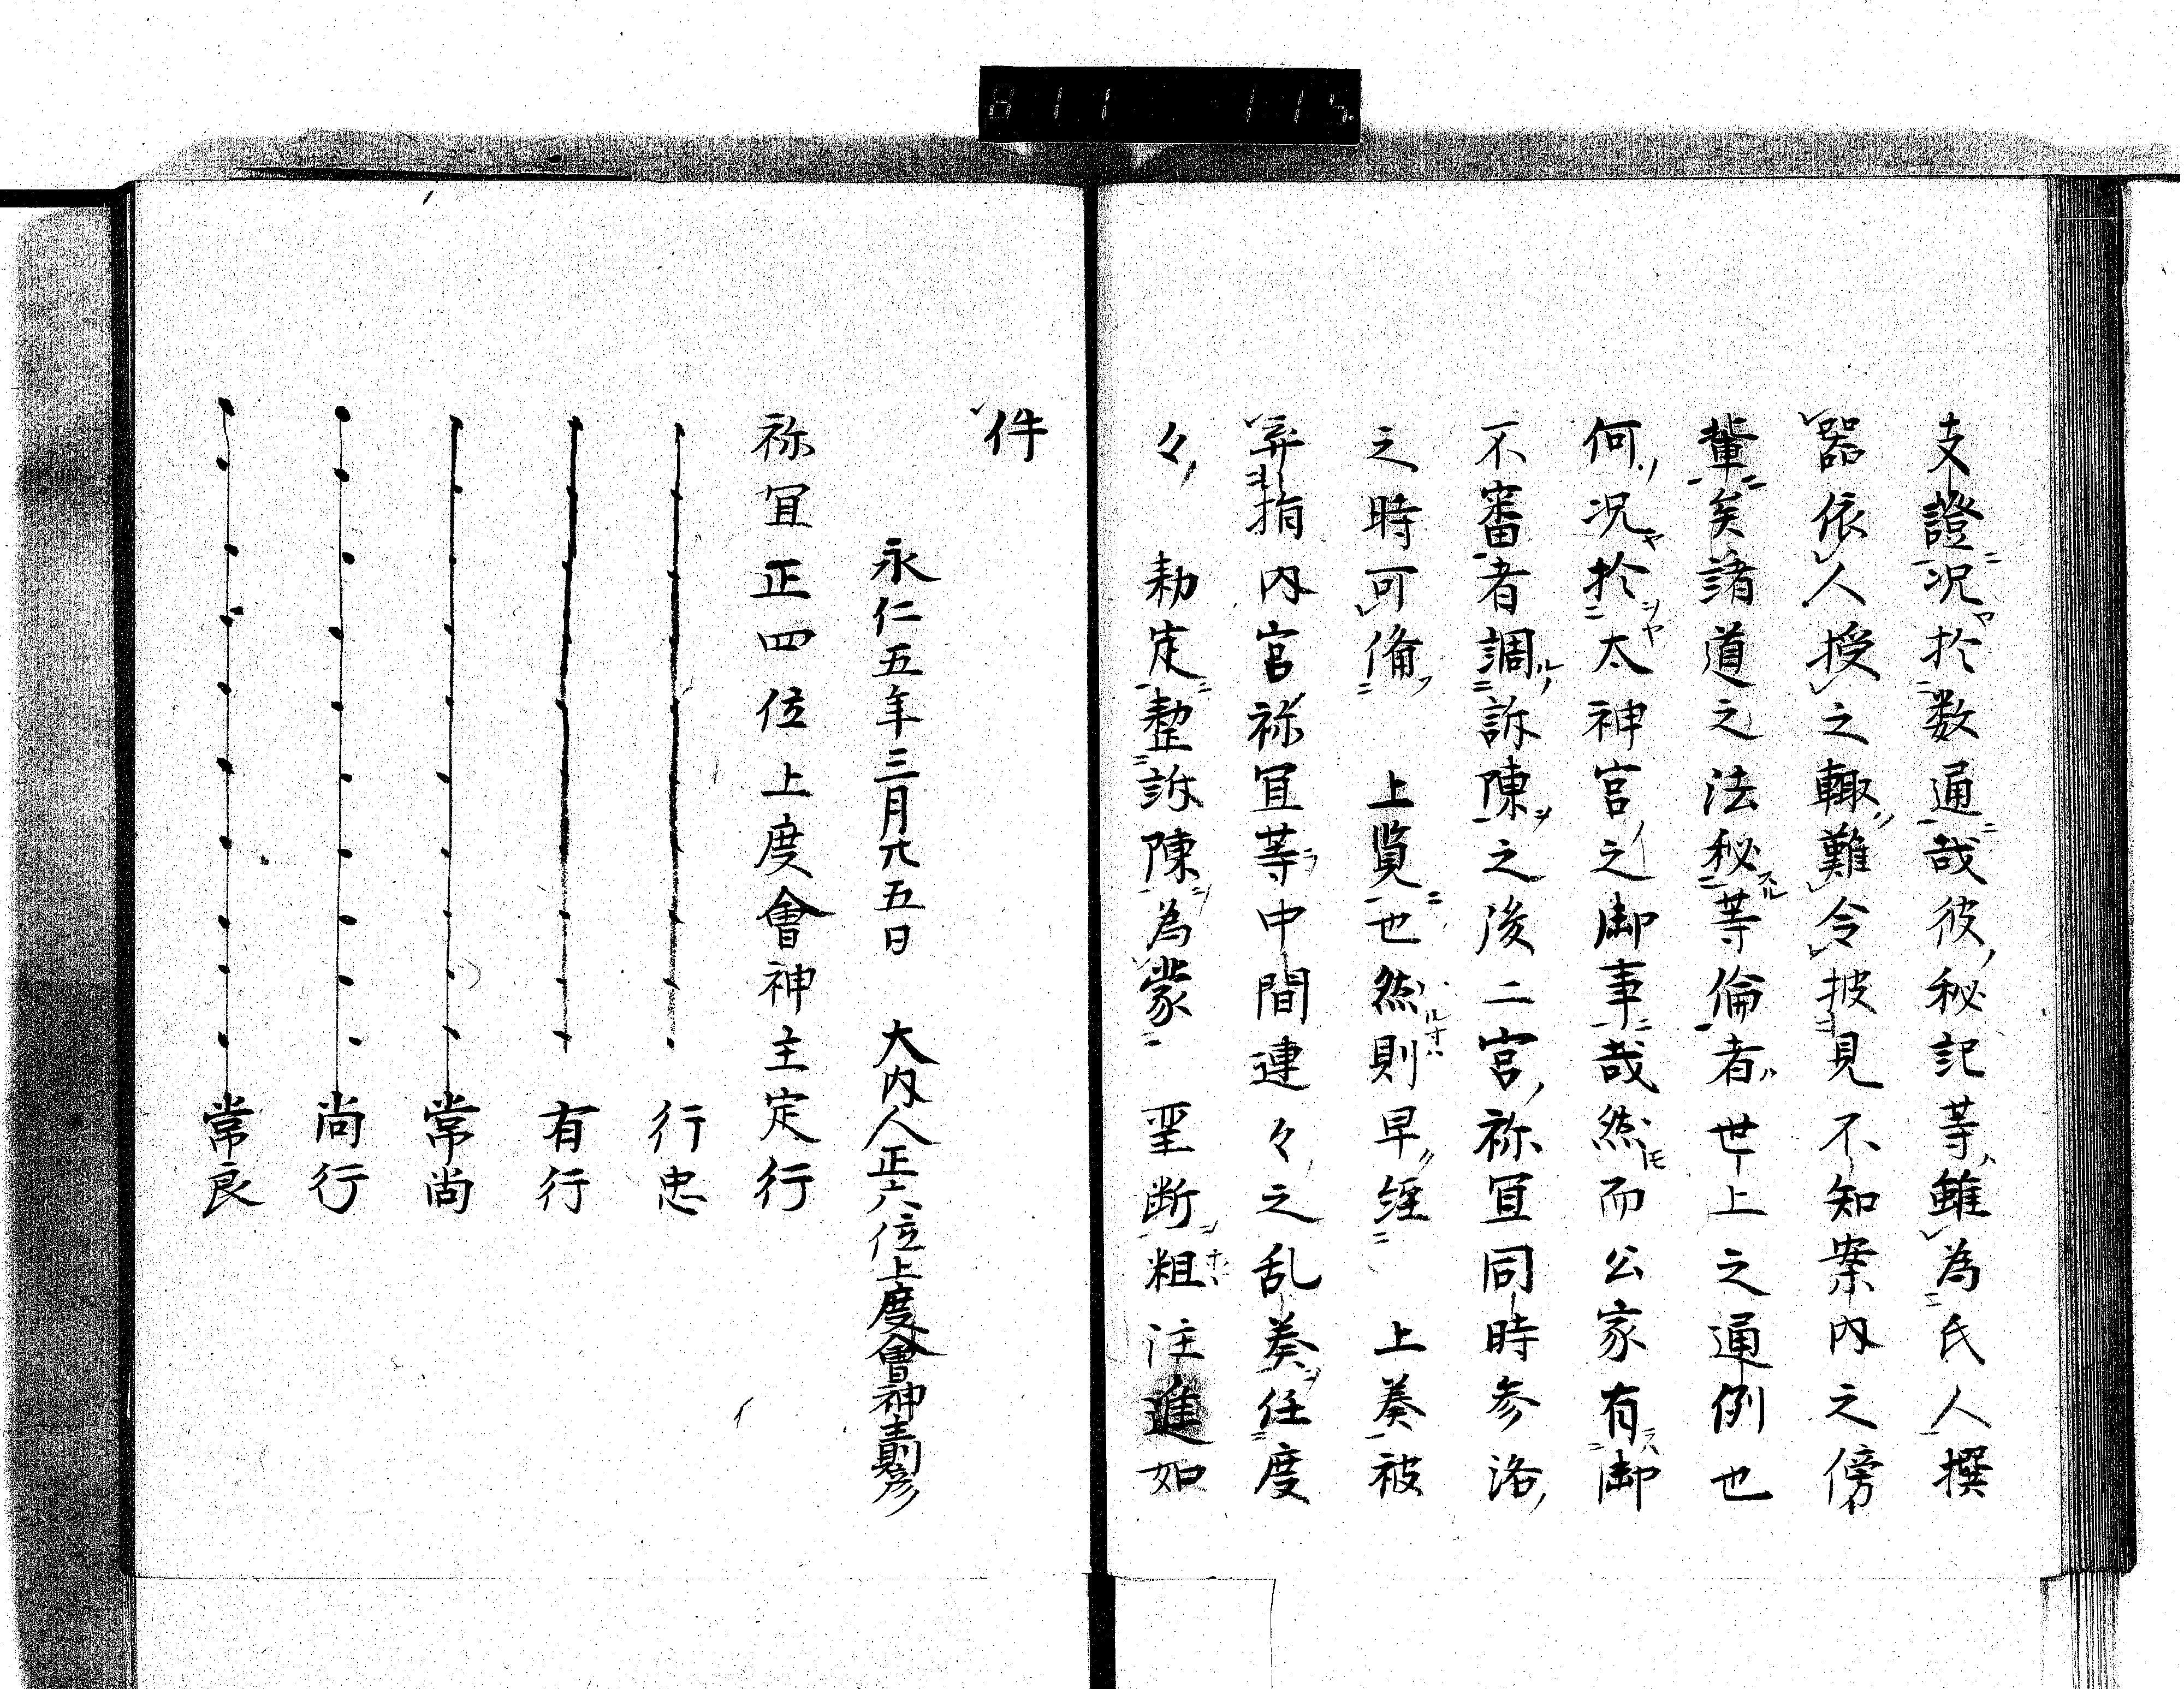 811 115
支證況於数通哉彼秘記等雖為氏人撰
器依人授之輙難令披見不知案内之傍
輩矣諸道之法秘等倫者世上之通例也
何況於太神宮之御事哉然而公家有御
不審者調訴陳之後二宮祢冝同時参洛
之時可備　上覧也然則早経　上奏被
弃捐内宮祢冝等中間連々之乱奏任度
々　勅定整訴陳為蒙　聖断粗注進如
件
永仁五年三月廿五日　大内人正六位上度會神主則彦
祢冝正四位上度會神主定行
行忠
有行
常尚
尚行
常良